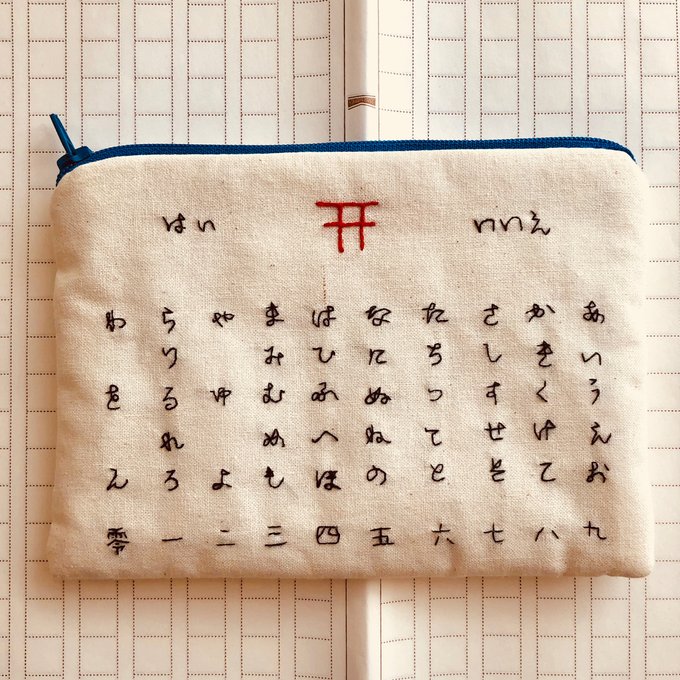 はい
いいえ
あいうえお
かきくけこ
さしすせそ
たちつてと
なにぬねの
はひふへほ
まみむめも
やゆよ
らりるれろ
わをん
零一二三四五六七八九